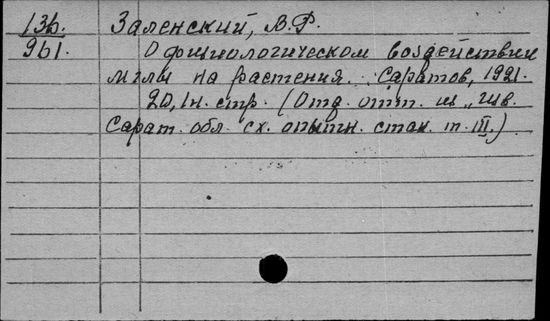 136. Заленский, В.Р.
961. О физиологическом воздействии
мглы на растения. Саратов, 1921.
20, 1н. стр. (Отд. отт. из
Сарат. обл. сх. опытн. стан. т. III.)